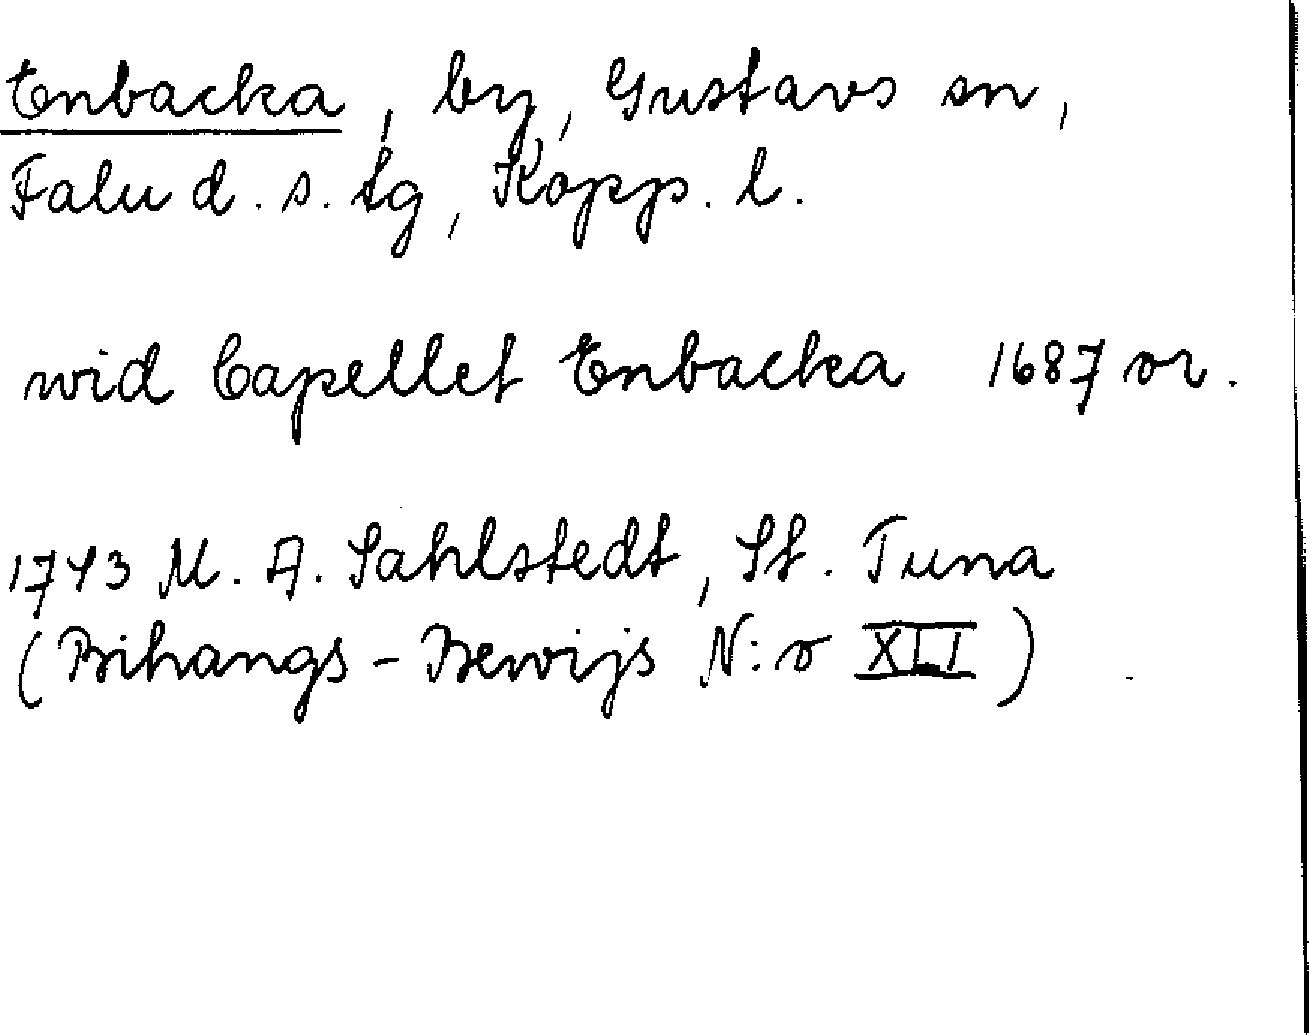 Enbacka, by, Gustavs sn,
Falu d. s. tg, Kopp. l.
wid Capellet Enbacka 1687 or.
1743 M. A. Sahlstedt, St. Tuna
(Bihangs-Bewijs N:o XLI)